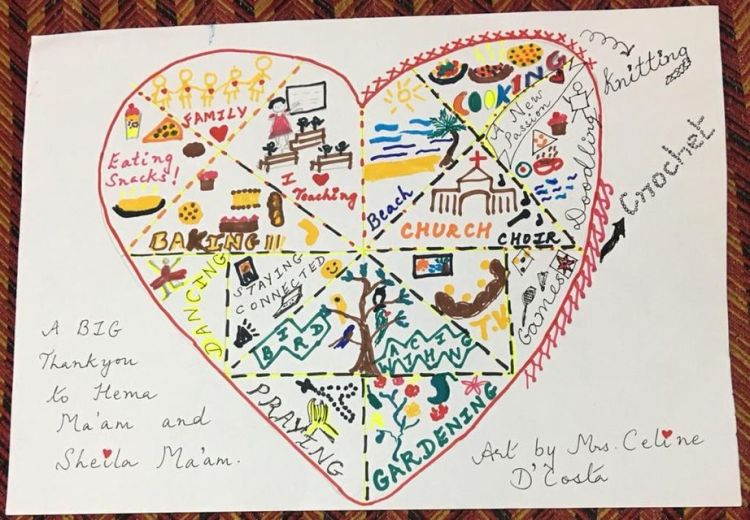 FAMILY
I ❤ Teaching
COOKING
Knitting
A New
Passion
Doodling
Crochet
Eating
Snacks!
BAKING!!
Beach
CHURCH
CHOIR
DANCING
STAYING
CONNECTED
BIRD
WATCHING
T.V.
Games
PRAYING
GARDENING
A BIG
Thankyou
to Hema
Ma'am and
Sheila Ma'am.
Art by Mrs. Celine
D'Costa